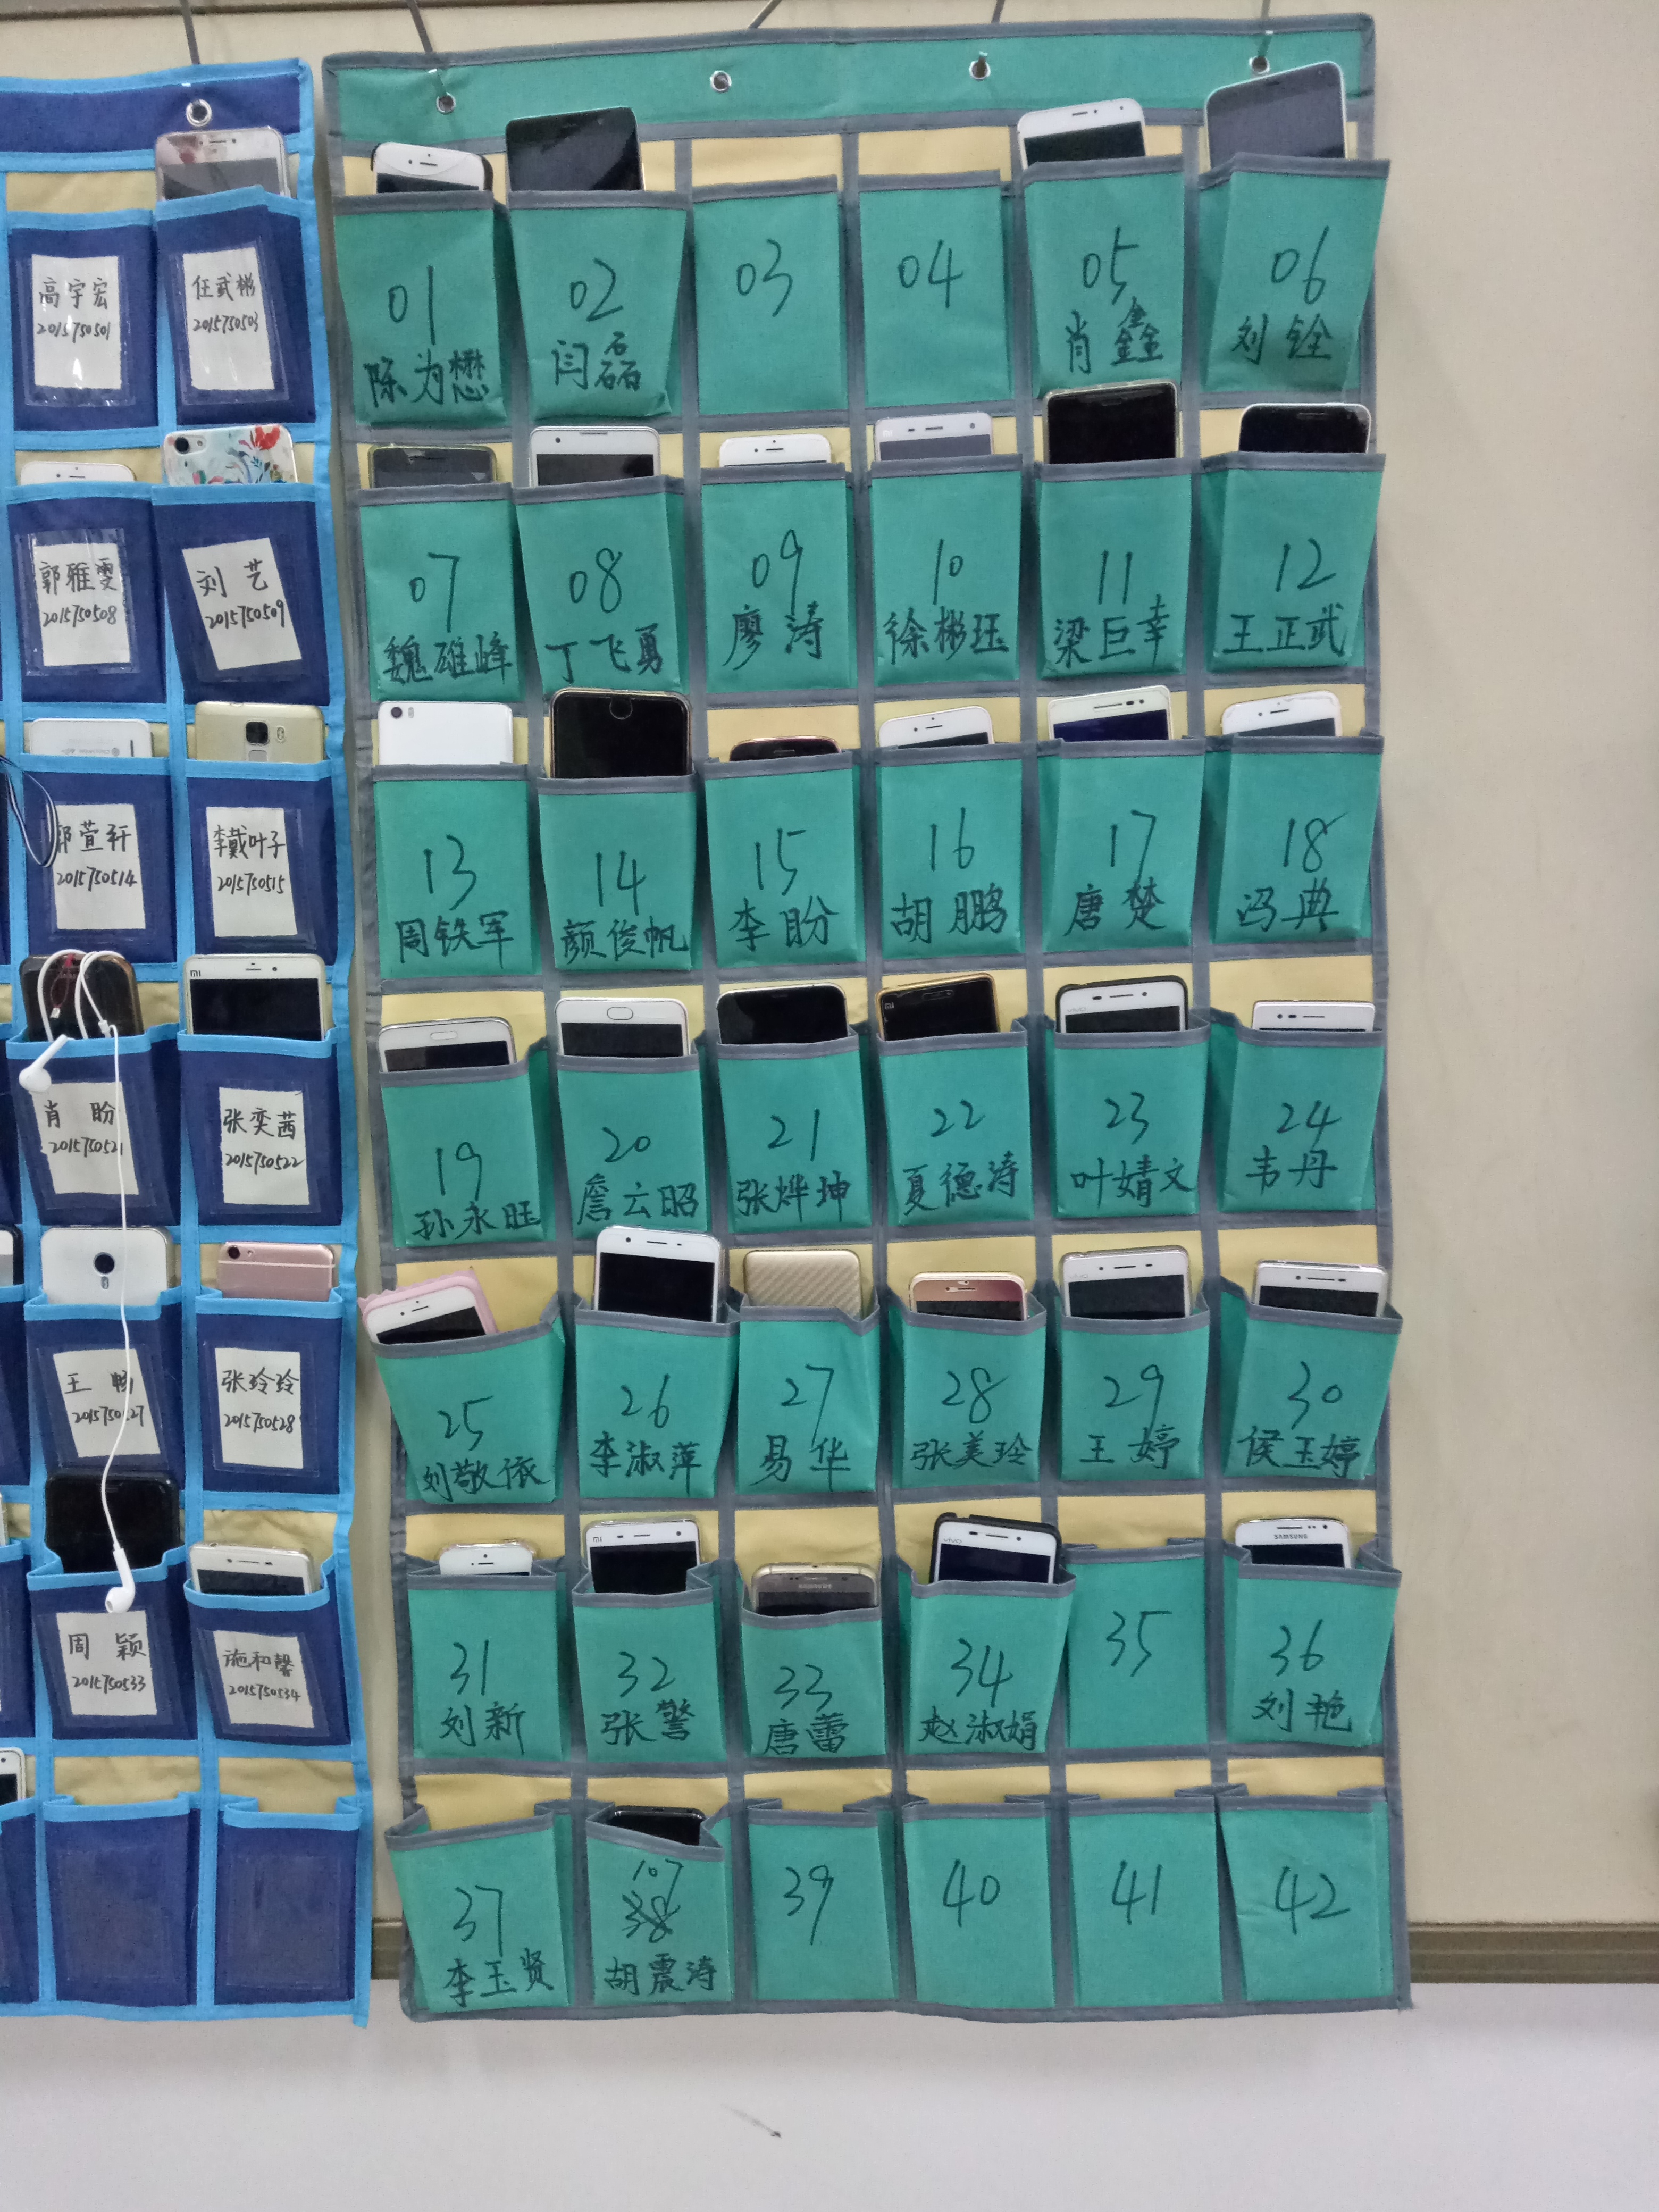 高宇宏
2015750501
任武彬
2015750503
郭雅雯
2015750508
刘艺
2015750509
郭萱轩
2015750514
李戴叶子
2015750515
肖盼
2015750521
张奕茜
2015750522
王畅
2015750527
张玲玲
2015750528
周颖
2015750533
施和馨
2015750534
01
陈为懋
02
闫磊
03
04
05
肖鑫
06
刘铨
07
魏雄峰
08
丁飞勇
09
廖涛
mi
10
徐彬珏
11
梁巨幸
12
王正武
13
周铁军
14
颜俊帆
15
李盼
16
胡鹏
17
唐楚
18
冯典
mi
19
孙永旺
20
詹云昭
21
张烨坤
mi
22
夏德涛
vivo
23
叶婧文
24
韦丹
25
刘敬依
26
李淑萍
27
易华
28
张美玲
vivo
29
王婷
30
侯玉婷
31
刘新
mi
32
张警
SAMSUNG
33
唐蕾
vivo
34
赵淑娟
35
SAMSUNG
36
刘艳
37
李玉贤
107
38
胡震涛
39
40
41
42